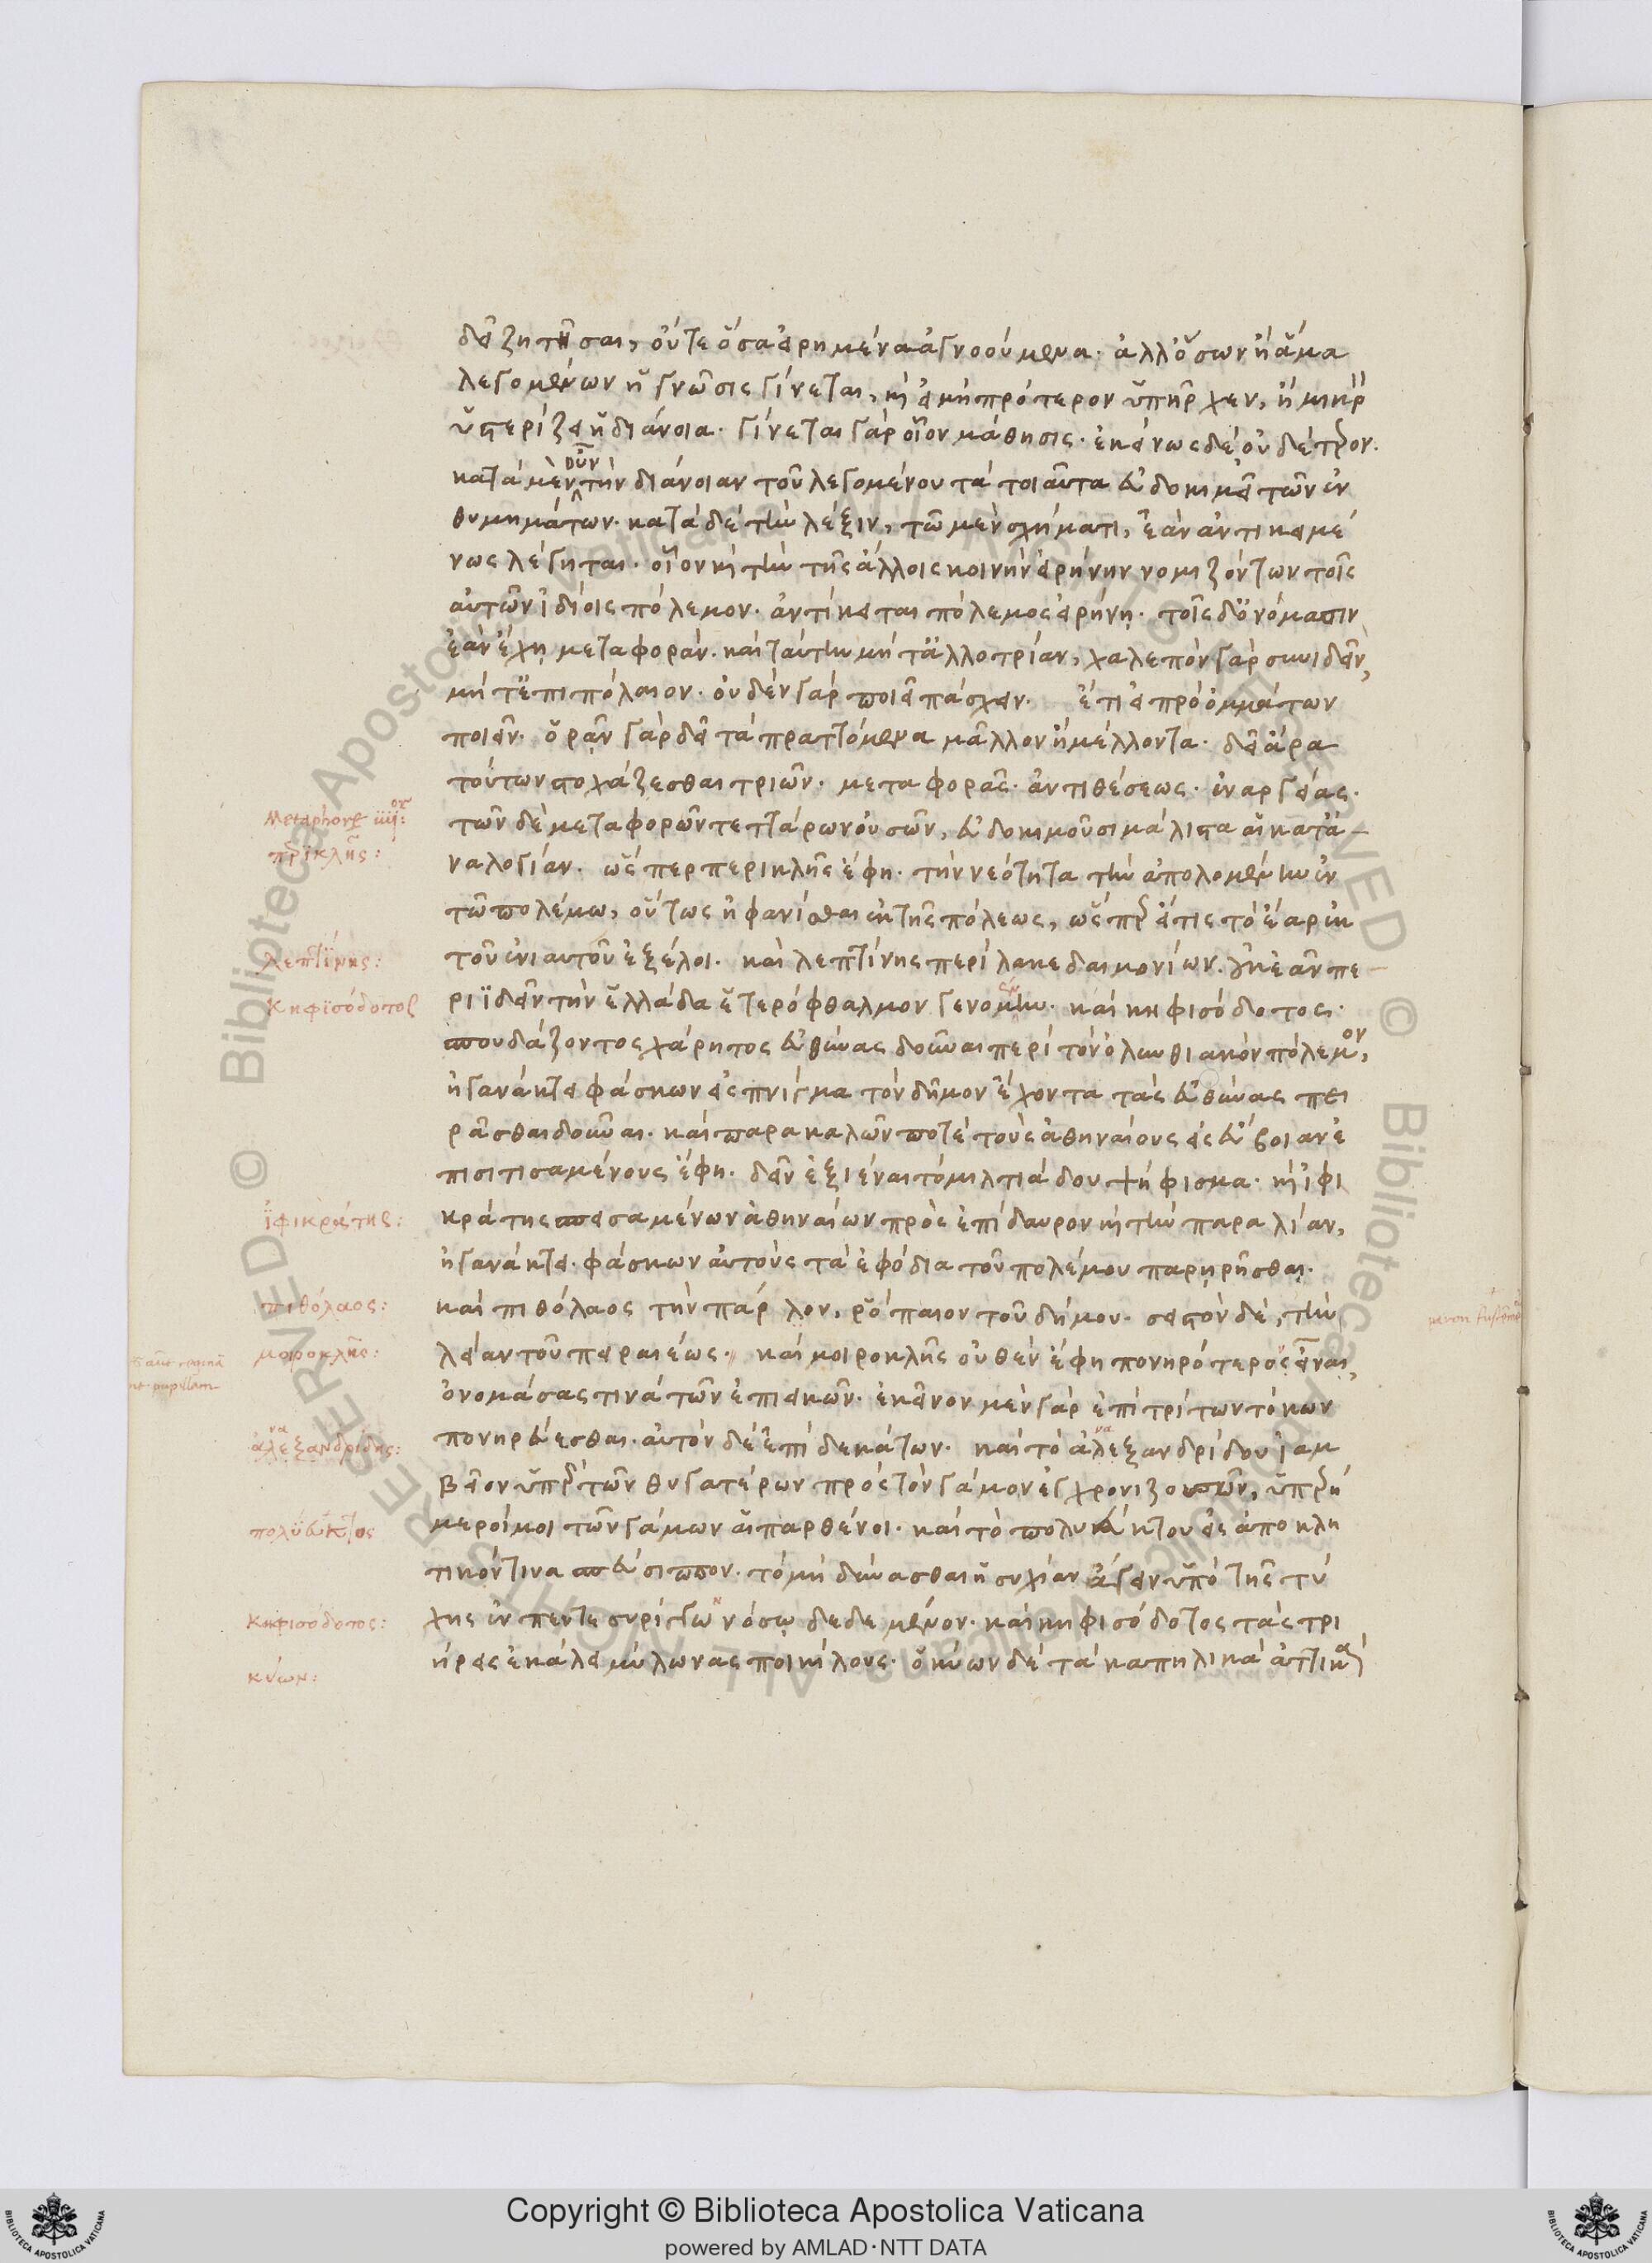 δεῖ ζητῆσαι, οὔτε ὅσα εἰρημένα ἀγνοούμενα· ἀλλ' ὅσων ἢ ἅμα
λεγομένων ἡ γνῶσις γίνεται, καὶ εἰ μὴ πρότερον ὑπῆρχεν, ἢ μικρ
ὑστερίζει ἡ διάνοια· γίνεται γὰρ οἷον μάθησις· ἐκείνως δὲ οὐδέτερον.
κατὰ μὲν οὖν τὴν διάνοιαν τοῦ λεγομένου τὰ τοιαῦτα εὐδοκιμεῖ τῶν ἐν
θυμημάτων· κατὰ δὲ τὴν λέξιν, τῶ μὲν σχήματι, ἐὰν ἀντικειμέ
νως λέγηται· οἷον καὶ τὴν τῆς ἄλλοις κοινὴν εἰρήνην νομιζόντων τοῖς
αὑτῶν ἰδίοις πόλεμον· ἀντίκειται πόλεμος εἰρήνη· τοῖς δ' ὀνόμασιν
ἐὰν ἔχη μεταφοράν. καὶ ταύτην μήτ' ἀλλοτρίαν, χαλεπὸν γὰρ συνιδεῖν,
μήτ' ἐπιπόλαιον· οὐδὲν γὰρ ποιεῖ πάσχειν· ἔτι εἰ πρὸ ὀμμάτων
ποιεῖν· ὁρᾶν γὰρ δεῖ τὰ πραττόμενα μᾶλλον ἢ μέλλοντα· δεῖ ἄρα
τούτων στοχάζεσθαι τριῶν· μεταφορᾶς· ἀντιθέσεως· ἐναργείας·
Metaphore iiii:
τῶν δὲ μεταφορῶν τεττάρων οὐσῶν, εὐδοκιμοῦσι μάλιστα αἱ κατὰ
περικλῆς:
ναλογίαν· ὥσπερ περικλῆς ἔφη· τὴν νεότητα τὴν ἀπολομένην ἐν
τῶ πολέμω, οὕτως ἠφανίσθαι ἐκ τῆς πόλεως, ὥσπερ εἴ τις τὸ ἔαρ ἐκ
λεπτίνης:
τοῦ ἐνιαυτοῦ ἐξέλοι· καὶ λεπτίνης περὶ λακεδαιμονίων. οὐκ ἐᾶν πε
Κηφισόδοτος
ριϊδεῖν τὴν ἑλλάδα ἑτερόφθαλμον γενομένην· καὶ κηφισόδοτος·
σπουδάζοντος χάρητος εὐθύνας δοῦναι περὶ τὸν ὀλυνθιακὸν πόλεμον,
ἠγανάκτει φάσκων εἰς πνίγμα τὸν δῆμον ἔχοντα τὰς εὐθύνας πει
ρᾶσθαι δοῦναι· καὶ παρακαλῶν ποτὲ τοὺς ἀθηναίους εἰς εὔβοιαν ἐ
πισιτισαμένους ἔφη· δεῖν ἐξιέναι τὸ μιλτιάδου ψήφισμα· καὶ ἰφι
ἰφικράτης:
κράτης σπεισαμένων ἀθηναίων πρὸς ἐπίδαυρον καὶ τὴν παραλίαν,
ἠγανάκτει· φάσκων αὐτοὺς τὰ ἐφόδια τοῦ πολέμου παρηρῆσθαι·
πιθόλαος:
καὶ πιθόλαος τὴν πάραλον, ῥόπαλον τοῦ δήμου· σηστὸν δὲ, τὴν
μοιροκλῆς:
λείαν τοῦ πειραιέως· καὶ μοιροκλῆς οὐθὲν ἔφη πονηρότερος εἶναι,
ὀνομάσας τινὰ τῶν ἐπιεικῶν· ἐκεῖνον μὲν γὰρ ἐπὶ τρίτων τόκων
ἀλεξανδρίδης:
πονηρεύεσθαι· αὐτὸν δὲ ἐπὶ δεκάτων· καὶ τὸ ἀλεξανδρίδου ἰαμ
βεῖον ὑπὲρ τῶν θυγατέρων πρὸς τὸν γάμον ἐγχρονιζουσῶν, ὑπερή
πολύευκτος
μεροί μοι τῶν γάμων αἱ παρθένοι· καὶ τὸ πολυεύκτου εἰς ἀποπλη
τικόν τινα σπεύσιππον· τὸ μὴ δύνασθαι ἡσυχίαν ἄγειν ὑπὸ τῆς τύ
Κηφισόδοτος:
χης ἐν πεντεσυρίγγω νόσω δεδεμένον· καὶ κηφισόδοτος τὰς τρι
κύων:
ήρεις ἐκάλει μύλωνας ποικίλους· ὁ κύων δὲ τὰ καπηλικὰ ἀττικὰ
Copyright © Biblioteca Apostolica Vaticana
powered by AMLAD·NTT DATA